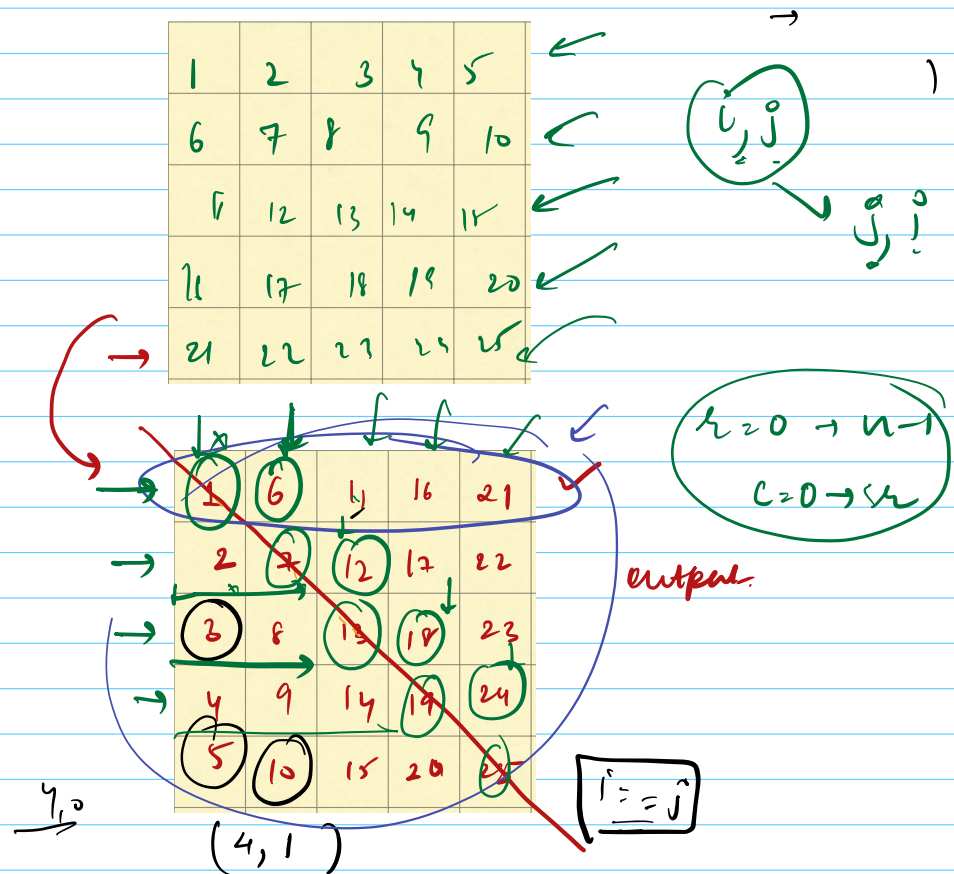 1 2 3 4 5
6 7 8 9 10
11 12 13 14 15
16 17 18 19 20
21 22 23 24 25
i, j
j, i
r = 0 → n-1
c = 0 → ≤r
1 6 11 16 21
2 7 12 17 22
3 8 13 18 23
4 9 14 19 24
5 10 15 20 25
output
i == j
4,0
(4, 1)